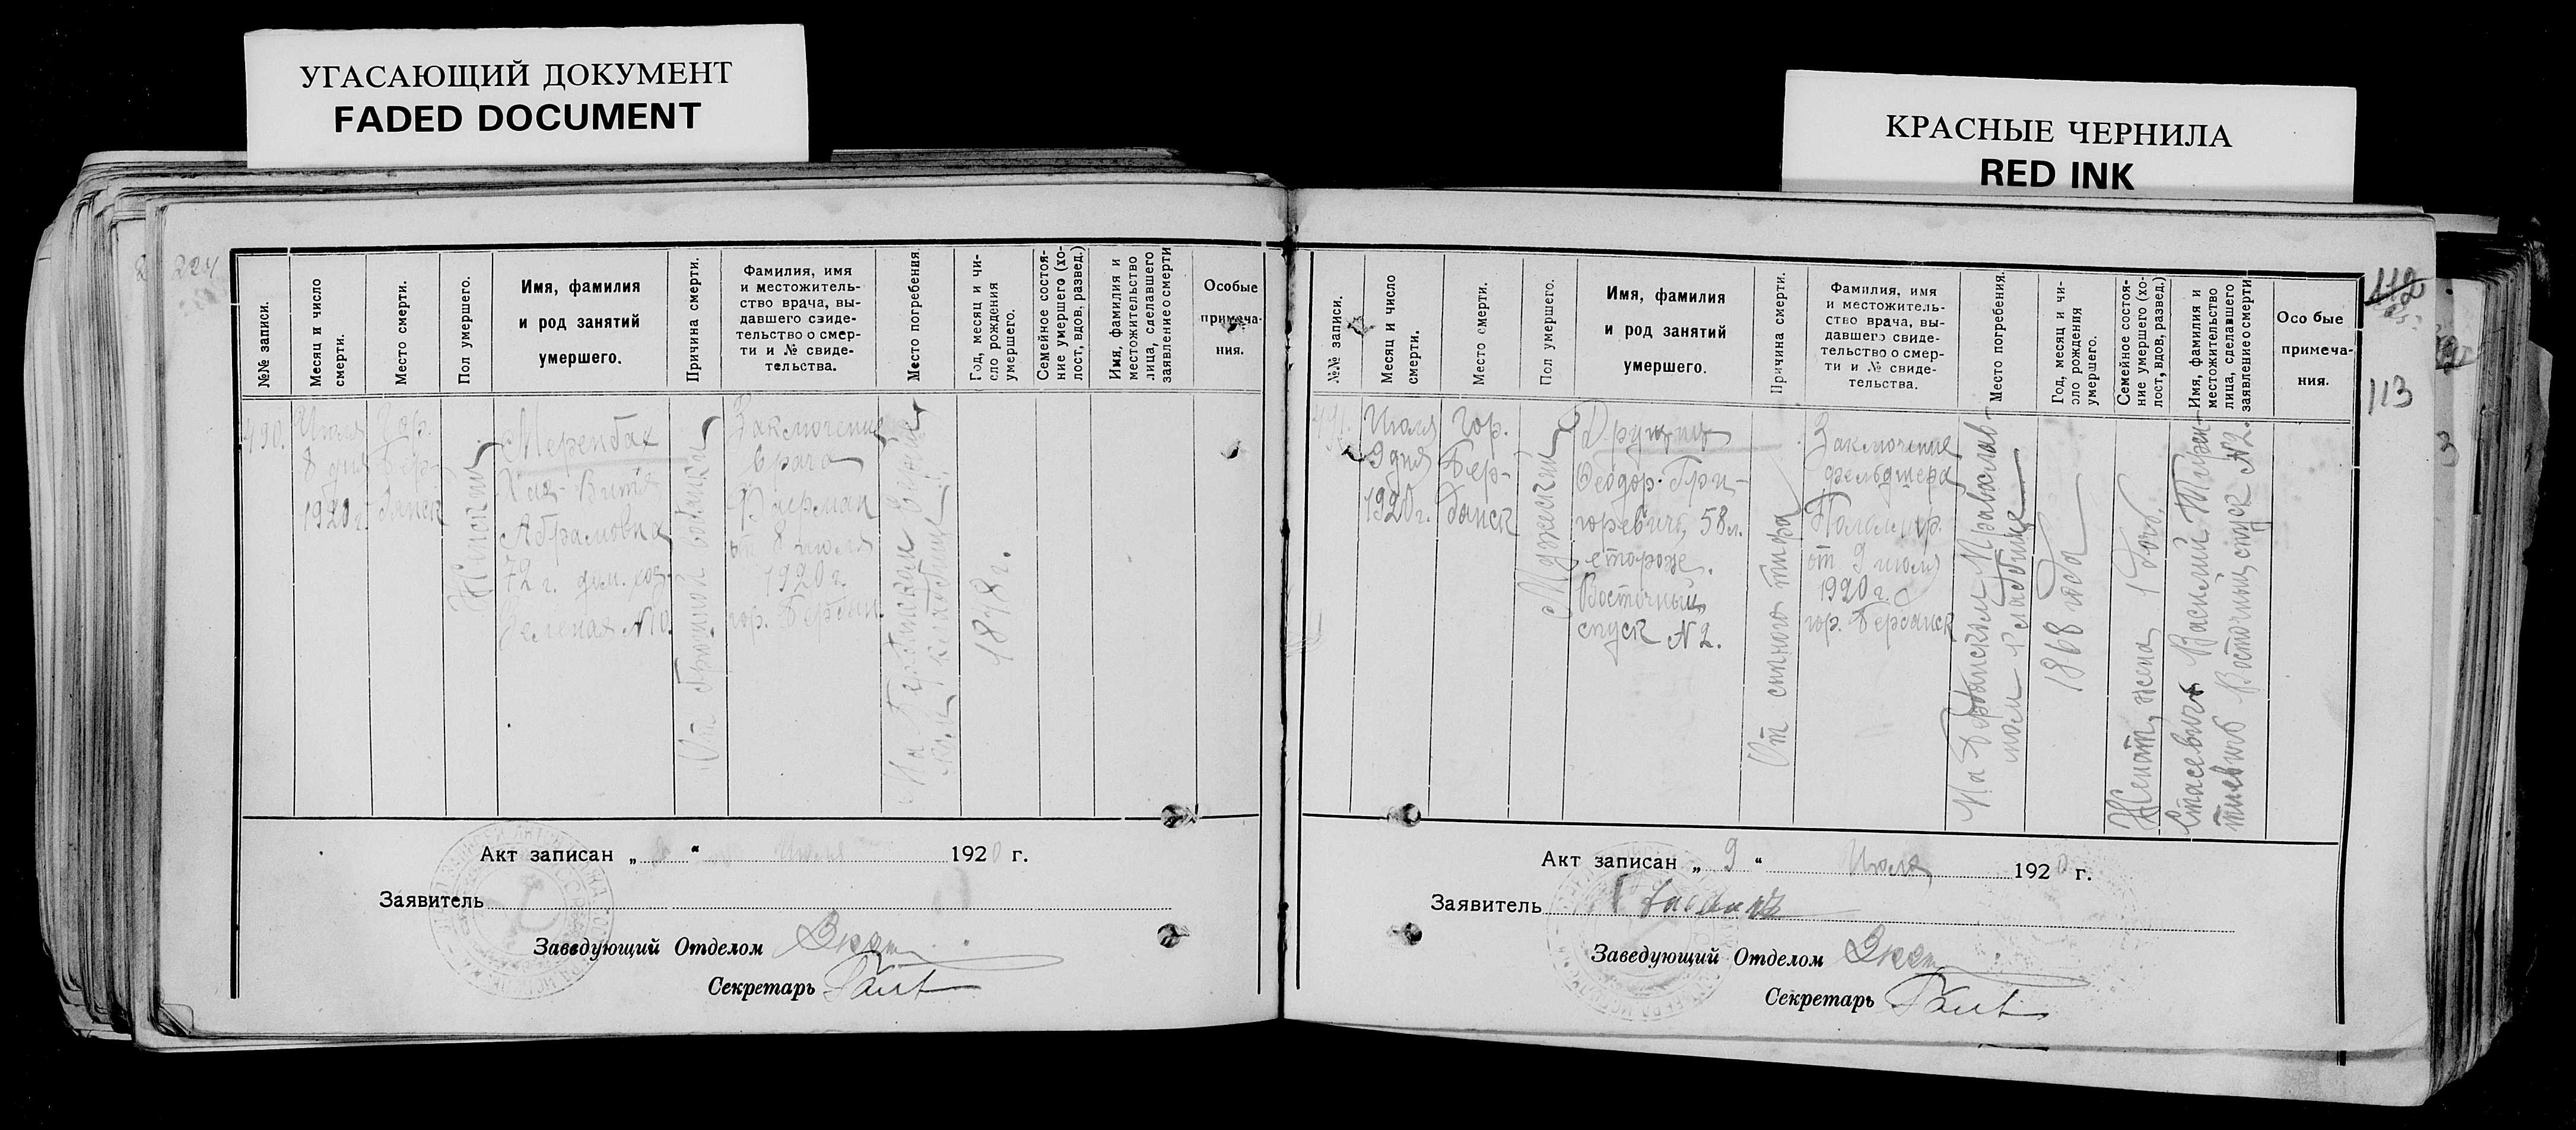 УГАСАЮЩИЙ ДОКУМЕНТ
FADED DOCUMENT
КРАСНЫЕ ЧЕРНИЛА
RED INK
224
№№ записи.
Месяц и число
смерти.
Место смерти.
Пол умершего.
Имя, фамилия
и род занятий
умершего.
Причина смерти.
Фамилия, имя
и местожитель-
ство врача, вы-
давшего свиде-
тельство о смер-
ти и № свиде-
тельства.
Место погребения.
Год, месяц и чи-
сло рождения
умершего.
Семейное состоя-
ние умершего (хо-
лост, вдов, развед.)
Имя, фамилия и
местожительство
лица, сделавшего
заявление о смерти
Особые
примеча-
ния.
490.
Июля
8 дня
1920 г.
гор.
Бер-
дянск
Женский
Меренбах
Хая-
Абрамовна
72 г. дом. хоз.
Зеленая №10.
От
Заключение
врача
от 8 июля
1920 г.
гор. Бердян.
На Бердянском
кладбище
1848 г.
Акт записан „8“ Июля 1920 г.
Заявитель
Заведующий Отделом
Секретарь
№№ записи.
Месяц и число
смерти.
Место смерти.
Пол умершего.
Имя, фамилия
и род занятий
умершего.
Причина смерти.
Фамилия, имя
и местожитель-
ство врача, вы-
давшего свиде-
тельство о смер-
ти и № свиде-
тельства.
Место погребения.
Год, месяц и чи-
сло рождения
умершего.
Семейное состоя-
ние умершего (хо-
лост, вдов, развед.)
Имя, фамилия и
местожительство
лица, сделавшего
заявление о смерти
Особые
примеча-
ния.
112
113
491.
Июля
9 дня
1920 г.
гор.
Бер-
дянск
Мужеский
Феодор Гри-
горьевич, 58 л.
сторож.
Восточный
спуск №2.
От сыпного тифа
Заключение
фельдшера
от 9 июля
1920 г.
гор. Бердянск
На Бердянском Православ-
ном кладбище
1868 года
Женат, жена, 1 дочь.
Василий
Восточный спуск №2.
Акт записан „9“ Июля 1920 г.
Заявитель
Заведующий Отделом
Секретарь